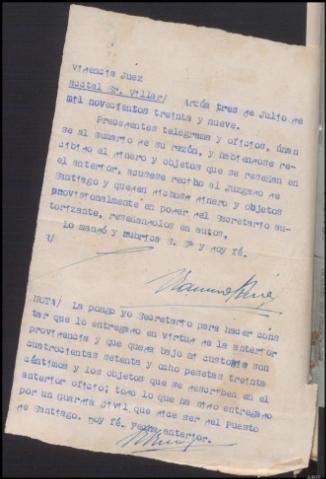 Videncia Juez
acctal Sr. Villar/ Arzúa tres de Julio de
mil novecientos treinta y nueve.
Precedentes telegrama y oficios, únan
se al sumario de su razón, y habiéndose re-
cibido el dinero y objetos que se reseñan en
el anterior, acúsese recibo al Juzgado de
Santiago y queden dichos dinero y objetos
provisionalmente en poder del Secretario au-
torizante, reseñándolos en autos.
Lo mandó y rubrica S. Sª y doy fé.
NOTA/ La pongo yo Secretario para hacer cons
tar que lo entregado en virtud de la anterior
providencia y que queda bajo mi custodia son
cuatrocientas setenta y ocho pesetas treinta
céntimos y los objetos que se describen en el
anterior oficio; todo lo que ha sido entregado
por un Guardia Civil que dice ser del Puesto
de Santiago. Doy fé. Fecha anterior.